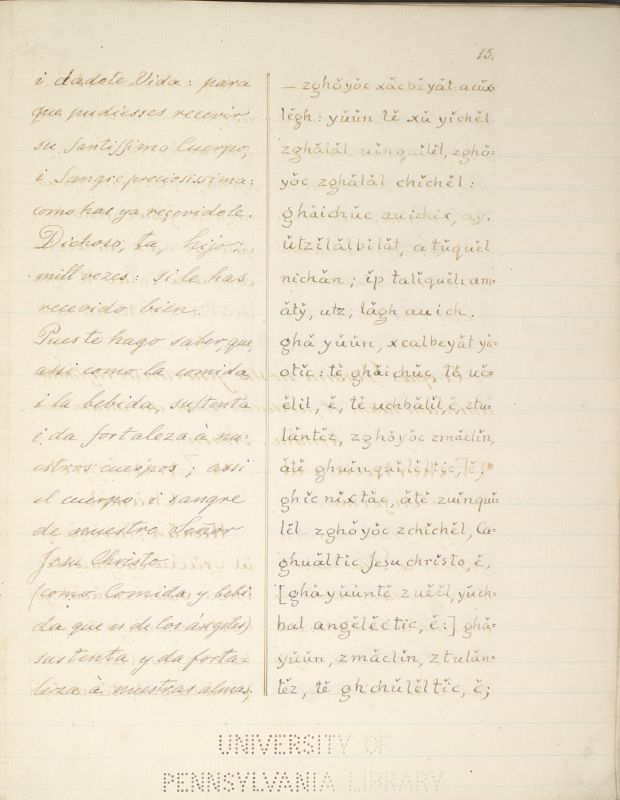 15.
i dadote Vida: para
que pudiesses recevir
su Santissima Cuerpo,
i Sangre preciosissima:
como has ya recevidote.
Dichoso, tu, hijo:
mill vezes: si le has
recevido bien.
Pues te hago saber, que,
assi como la comida
i la bebida, sustenta
i da fortaleza à nu=
estros cuerpos; assi
el cuerpo i sangre
de nuestro Señor
Jesu Christo
(como Comida, y bebi=
da que es de los ángeles)
sustenta y da forta=
leza à nuestras almas;
— zghŏyŏc xăcbĕyăt acŭx=
lĕgh: yŭŭn lĕ xŭ yĭchĕl
zghălăl uĭnquĭlĕl, zghŏ=
yŏc zghălăl chĭchĕl:
ghăichŭc auichix, ay.
ŭtzĭlălbilăt, atŭquĕl
nichăn; ĭp talĭquĕl: am=
ătў, utz, lăgh auich.
ghă yŭŭn, xcalbeyăt yă=
otĭc: tĕ ghăichŭc, tĕ uĕ=
ĕlil, ĕ, tĕ uchbălĭl, ĕ, ztu=
lăntĕz, zghŏyŏc zmăclĭn,
ătĕ ghuĭnquĭlĕltic, ĕ.
ghĭc nĭxtăc, ătĕ zuĭnquĭ=
lĕl zghŏyŏc zchĭchĕl, Ca=
ghuăltic Jesu christo, ĕ,
[ghă yŭŭntĕ zuĕĕl, yŭch=
bal angĕlĕctic, ĕ:] ghă=
yŭŭn, zmăclĭn, ztulăn=
tĕz, tĕ ghchŭlĕltĭc, ĕ;
UNIVERSITY OF
PENNSYLVANIA LIBRARY